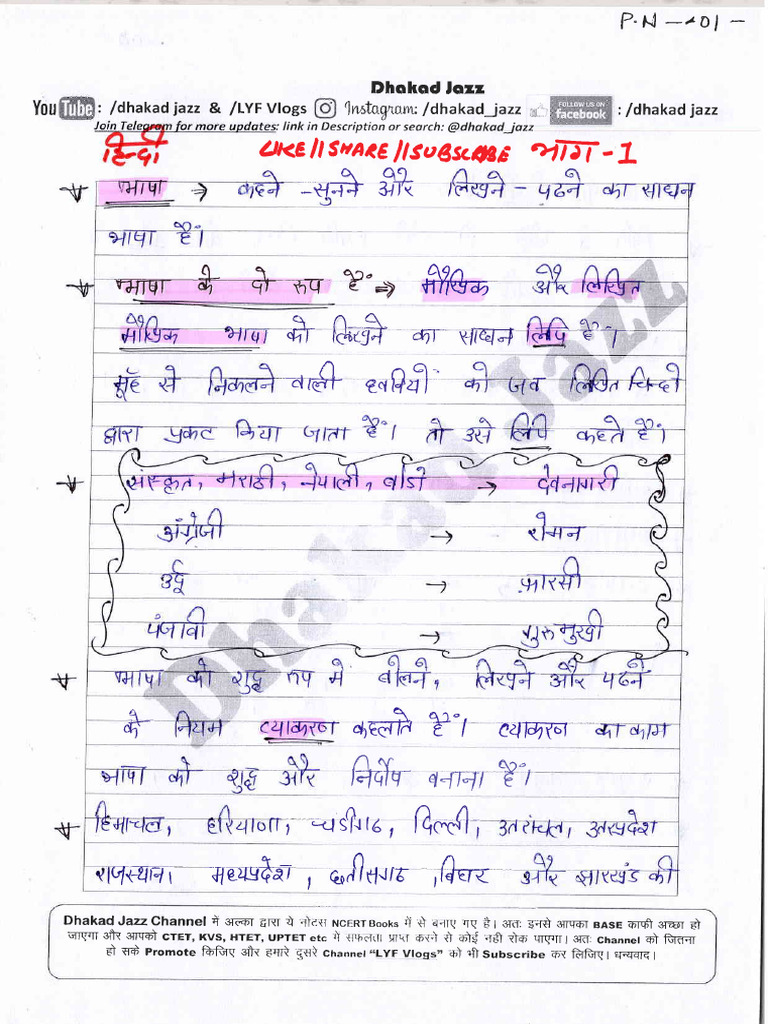 P.N - 01 -
Dhakad Jazz
YouTube : /dhakad jazz & /LYF Vlogs Instagram: /dhakad_jazz FOLLOW US ON facebook : /dhakad jazz
Join Telegram for more updates: link in Description or search: @dhakad_jazz
हिन्दी LIKE//SHARE//SUBSCRIBE भाग - 1
भाषा → कहने - सुनने और लिखने - पढने का साधन
भाषा हैं।
भाषा के दो रूप हैं ⇒ मौखिक और लिखित
मौखिक भाषा को लिखने का साधन लिपि हैं।
मूहँ से निकलने वाली ध्वनियों को जब लिखित चिन्हो
द्वारा प्रकट किया जाता हैं। तो उसे लिपि कहते हैं।
संस्कृत, मराठी, नेपाली, बोडो → देवनागरी
अंग्रेजी → रोमन
उर्दू → फ़ारसी
पंजाबी → गुरुमुखी
भाषा को शुद्ध रूप में बोलने, लिखने और पढने
के नियम व्याकरण कहलाते हैं। व्याकरण का काम
भाषा को शुद्ध और निर्दोष बनाना हैं।
हिमाचल, हरियाणा, चडीगढ, दिल्ली, उतरांचल, उतरप्रदेश
राजस्थान। मध्यप्रदेश, छतीसगढ, बिहार और झारखंड की
Dhakad Jazz Channel में अल्का द्वारा ये नोटस NCERT Books में से बनाए गए है। अतः इनसे आपका BASE काफी अच्छा हो
जाएगा और आपको CTET, KVS, HTET, UPTET etc में सफलता प्राप्त करने से कोई नही रोक पाएगा। अतः Channel को जितना
हो सके Promote किजिए और हमारे दुसरे Channel "LYF Vlogs" को भी Subscribe कर लिजिए। धन्यवाद।
Dhakad Jazz